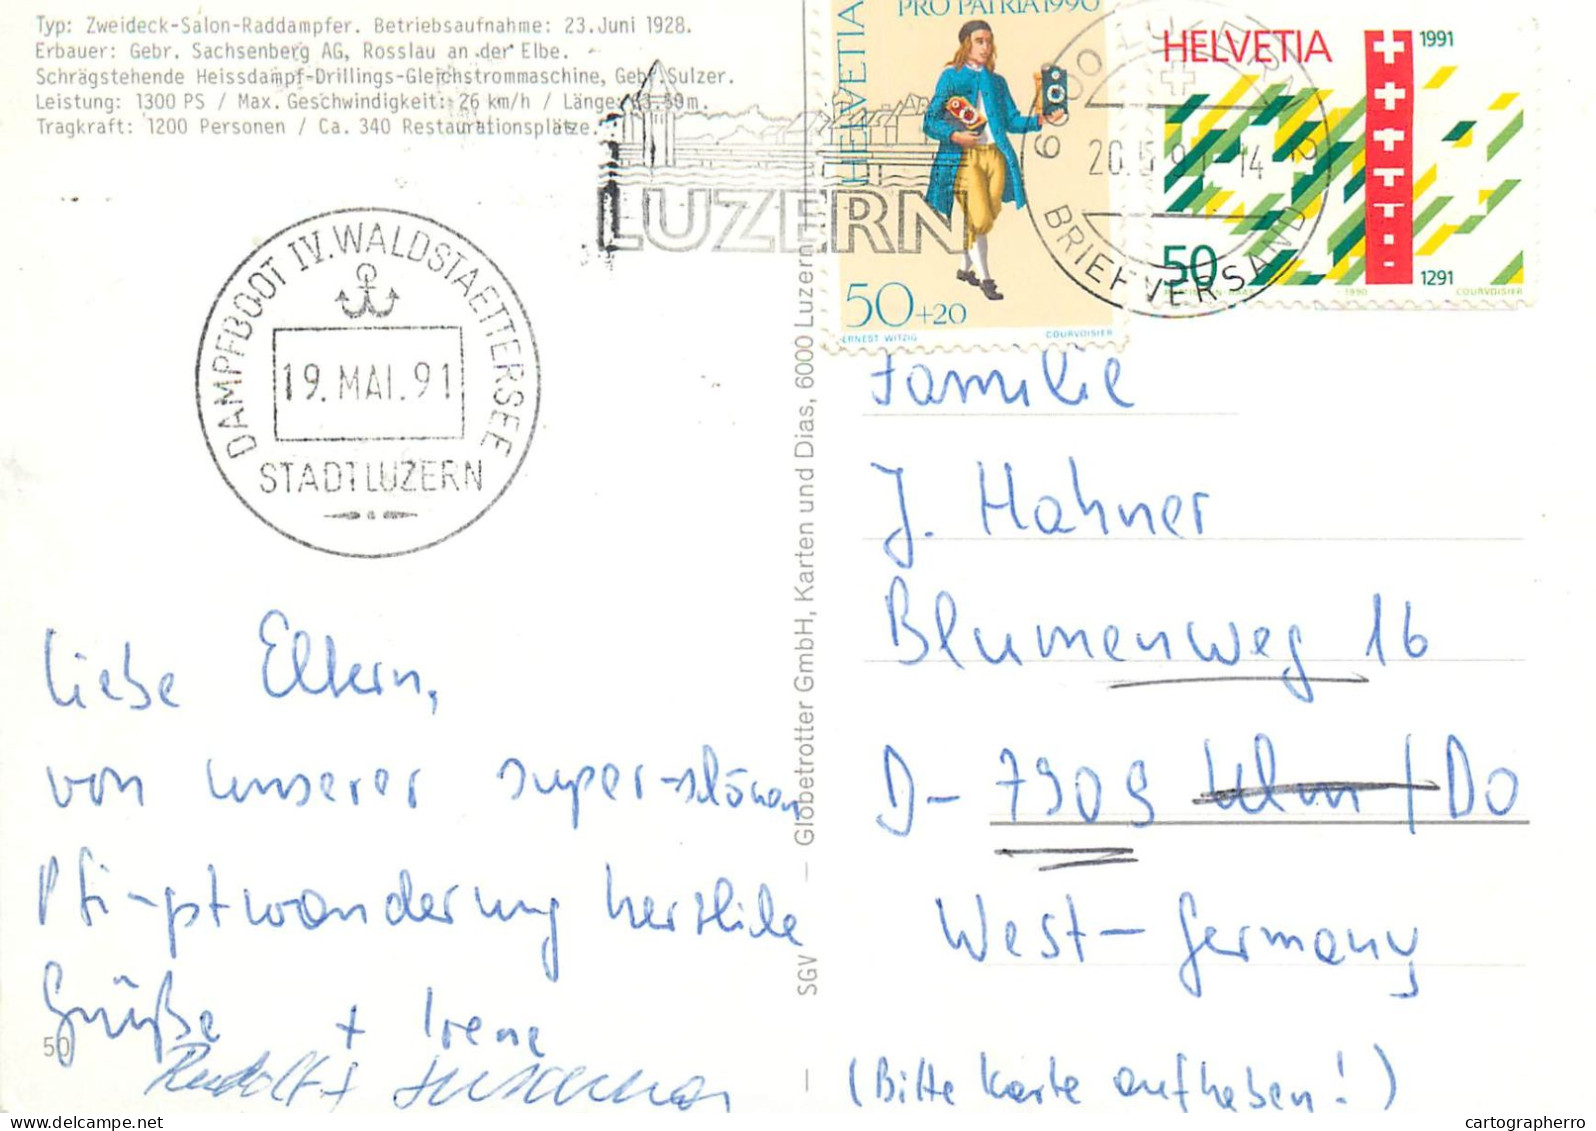 Typ: Zweideck-Salon-Raddampfer. Betriebsaufnahme: 23.Juni 1928.
Erbauer: Gebr. Sachsenberg AG, Rosslau an der Elbe.
Schrägstehende Heissdampf-Drillings-Gleichstrommaschine, Gebr.Sulzer.
Leistung: 1300 PS / Max. Geschwindigkeit: 26 km/h / Länge: 63.50m.
Tragkraft: 1200 Personen / Ca. 340 Restaurationsplätze.
LUZERN
PRO PATRIA 1990
HELVETIA
50+20
ERNEST WITZIG
COURVOISIER
HELVETIA
1991
50
1291
1990
COURVOISIER
6000 LUZERN 2
20.5.91-14
BRIEFVERSAND
DAMPFBOOT IV. WALDSTAETTERSEE
19. MAI. 91
STADT LUZERN
SGV — Globetrotter GmbH, Karten und Dias, 6000 Luzern
Liebe Eltern,
von unserer super-schönen
Pfingstwanderung herzliche
Grüße + Irene
Rudolf +
50
Familie
J. Hahner
Blumenweg 16
D- 7909 Ulm / Do
West-Germany
(Bitte Karte aufheben!)
cartographerro.com